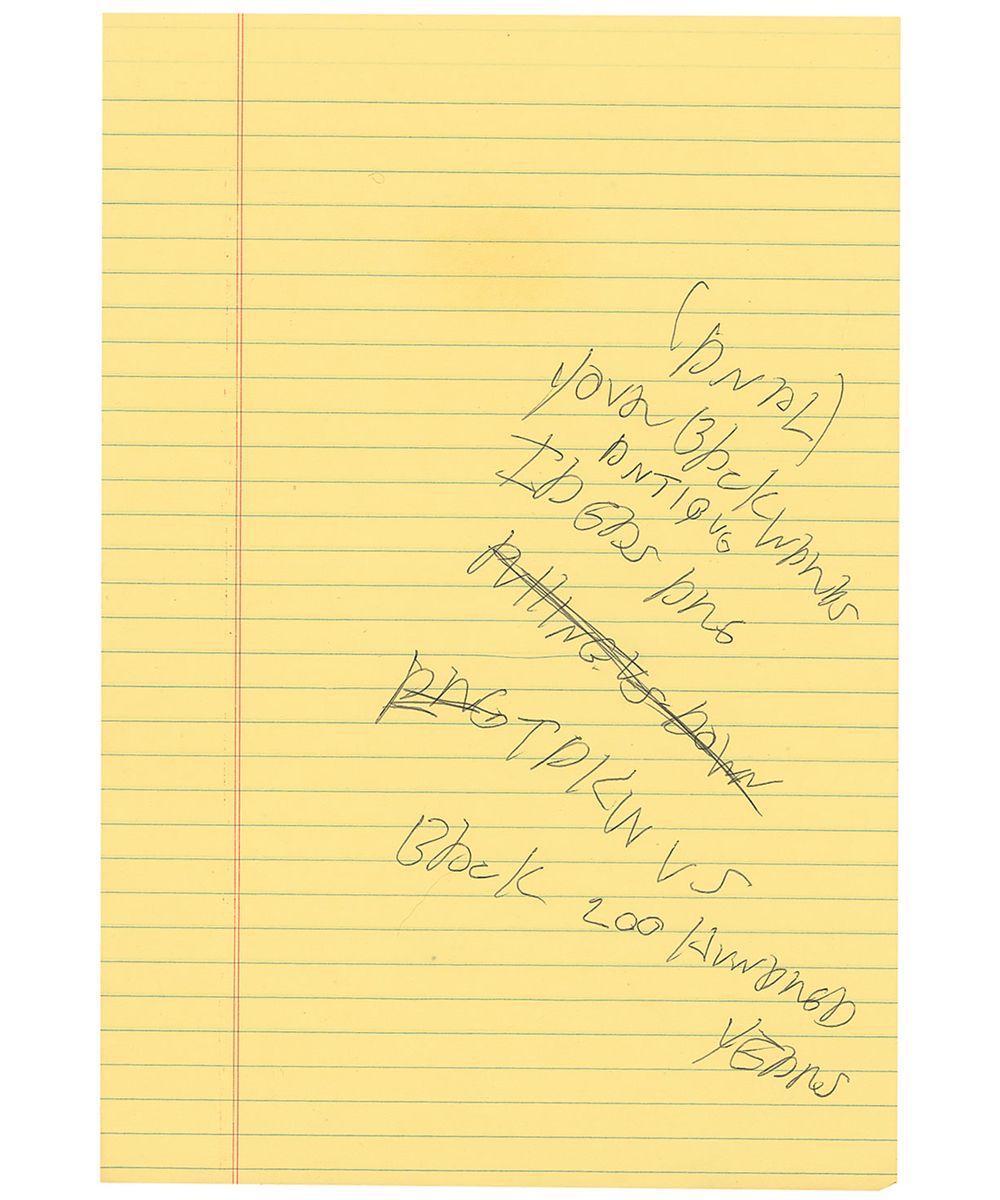 (ANAL)
YOUR BACKWARDS
ANTIQUE
IDEAS ARE
PULLING US DOWN
ARE TAKIN US
BACK 200 HUNDRED
YEARS